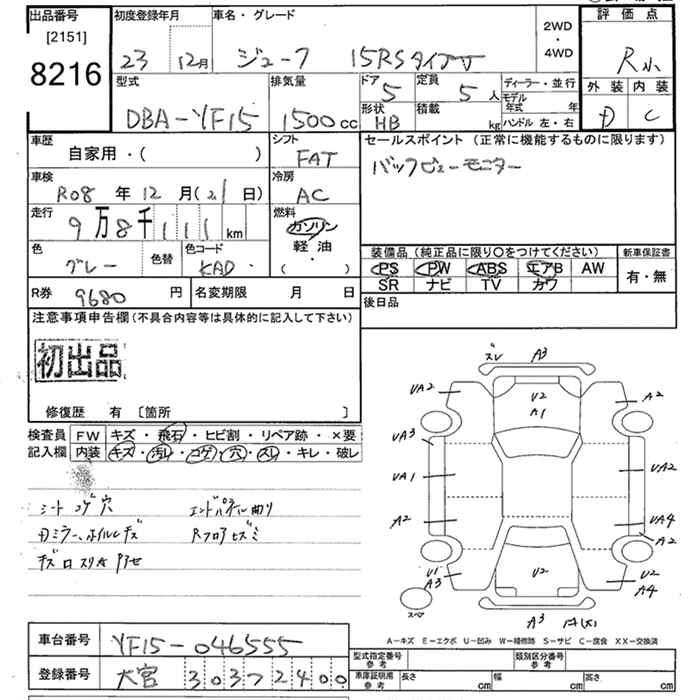 出品番号 初度登録年月 車名・グレード 2WD・4WD 評価点
[2151]
8216
23 12月 ジューク 15RSタイプV R小
外装 内装
D C
型式 排気量 ドア 定員 ディーラー・並行
DBA-YF15 1500cc 5 5人 モデル年式 年
形状 積載 ハンドル 左・右
HB kg
車歴 シフト セールスポイント (正常に機能するものに限ります)
自家用・( ) FAT バックビューモニター
車検 冷房
R08年12月(21日) AC
走行 燃料
9万8千111km ガソリン
軽油
・( )
色 色替 色コード 装備品 (純正品に限り〇をつけてください) 新車保証書
グレー KAD PS PW ABS エアB AW 有・無
SR ナビ TV カワ
R券 9680円 名変期限 月 日 後日品
注意事項申告欄 (不具合内容等は具体的に記入して下さい)
初出品
修復歴 有 〔箇所 〕
検査員記入欄 FW キズ・飛石・ヒビ割・リペア跡・×要
内装 キズ・汚レ・コゲ・穴・スレ・キレ・破レ
シート コゲ穴 エンドパネル曲り
Rフロアヒズミ
ズレ A3
UA2 U2 A1 A2
UA3
UA1 UA2
A2 UA4
A2
U1 A3 U2 U2 A4
スペア
A3
A-キズ E-エクボ U-凹み W-補修跡 S-サビ C-腐食 XX-交換済
車台番号 YF15-046555
型式指定番号 参考 類別区分番号 参考
登録番号 大宮 303 7 2400
車庫証明用 参考 長さ cm 幅 cm 高さ cm